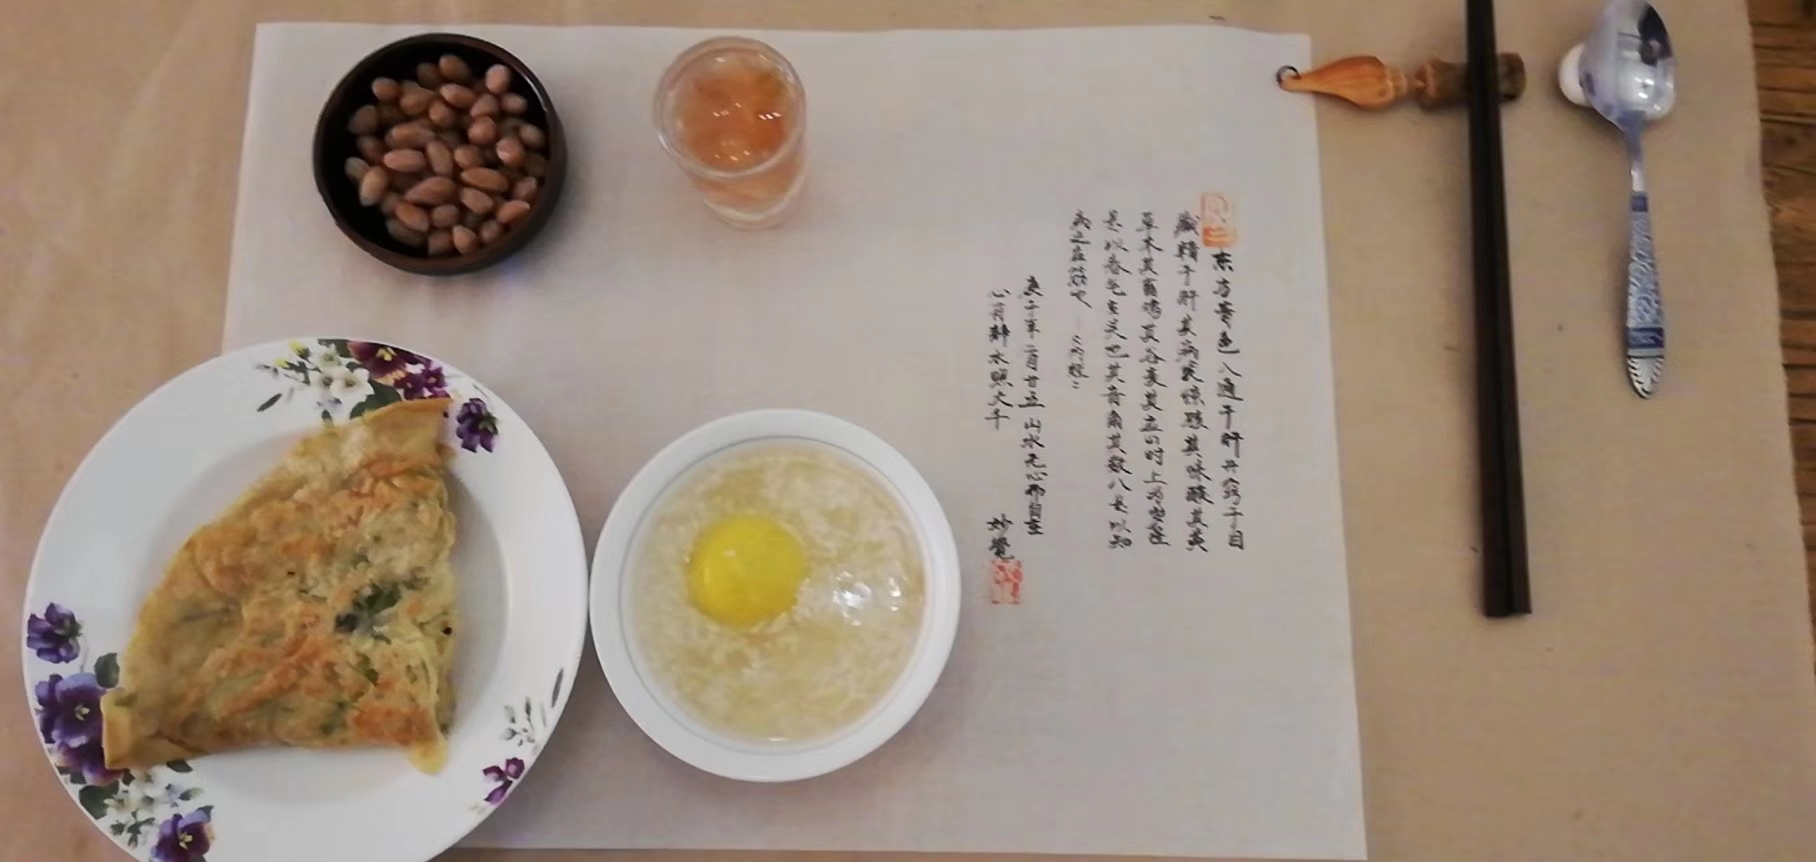 东方青色入通于肝开窍于目
藏精于肝其病发惊骇其味酸其类
草木其畜鸡其谷麦其应四时上为岁星
是以春气在头也其音角其数八是以知
病之在筋也 内经
庚子年二月廿五 山水无心都自在
心有静水照大千 妙觉